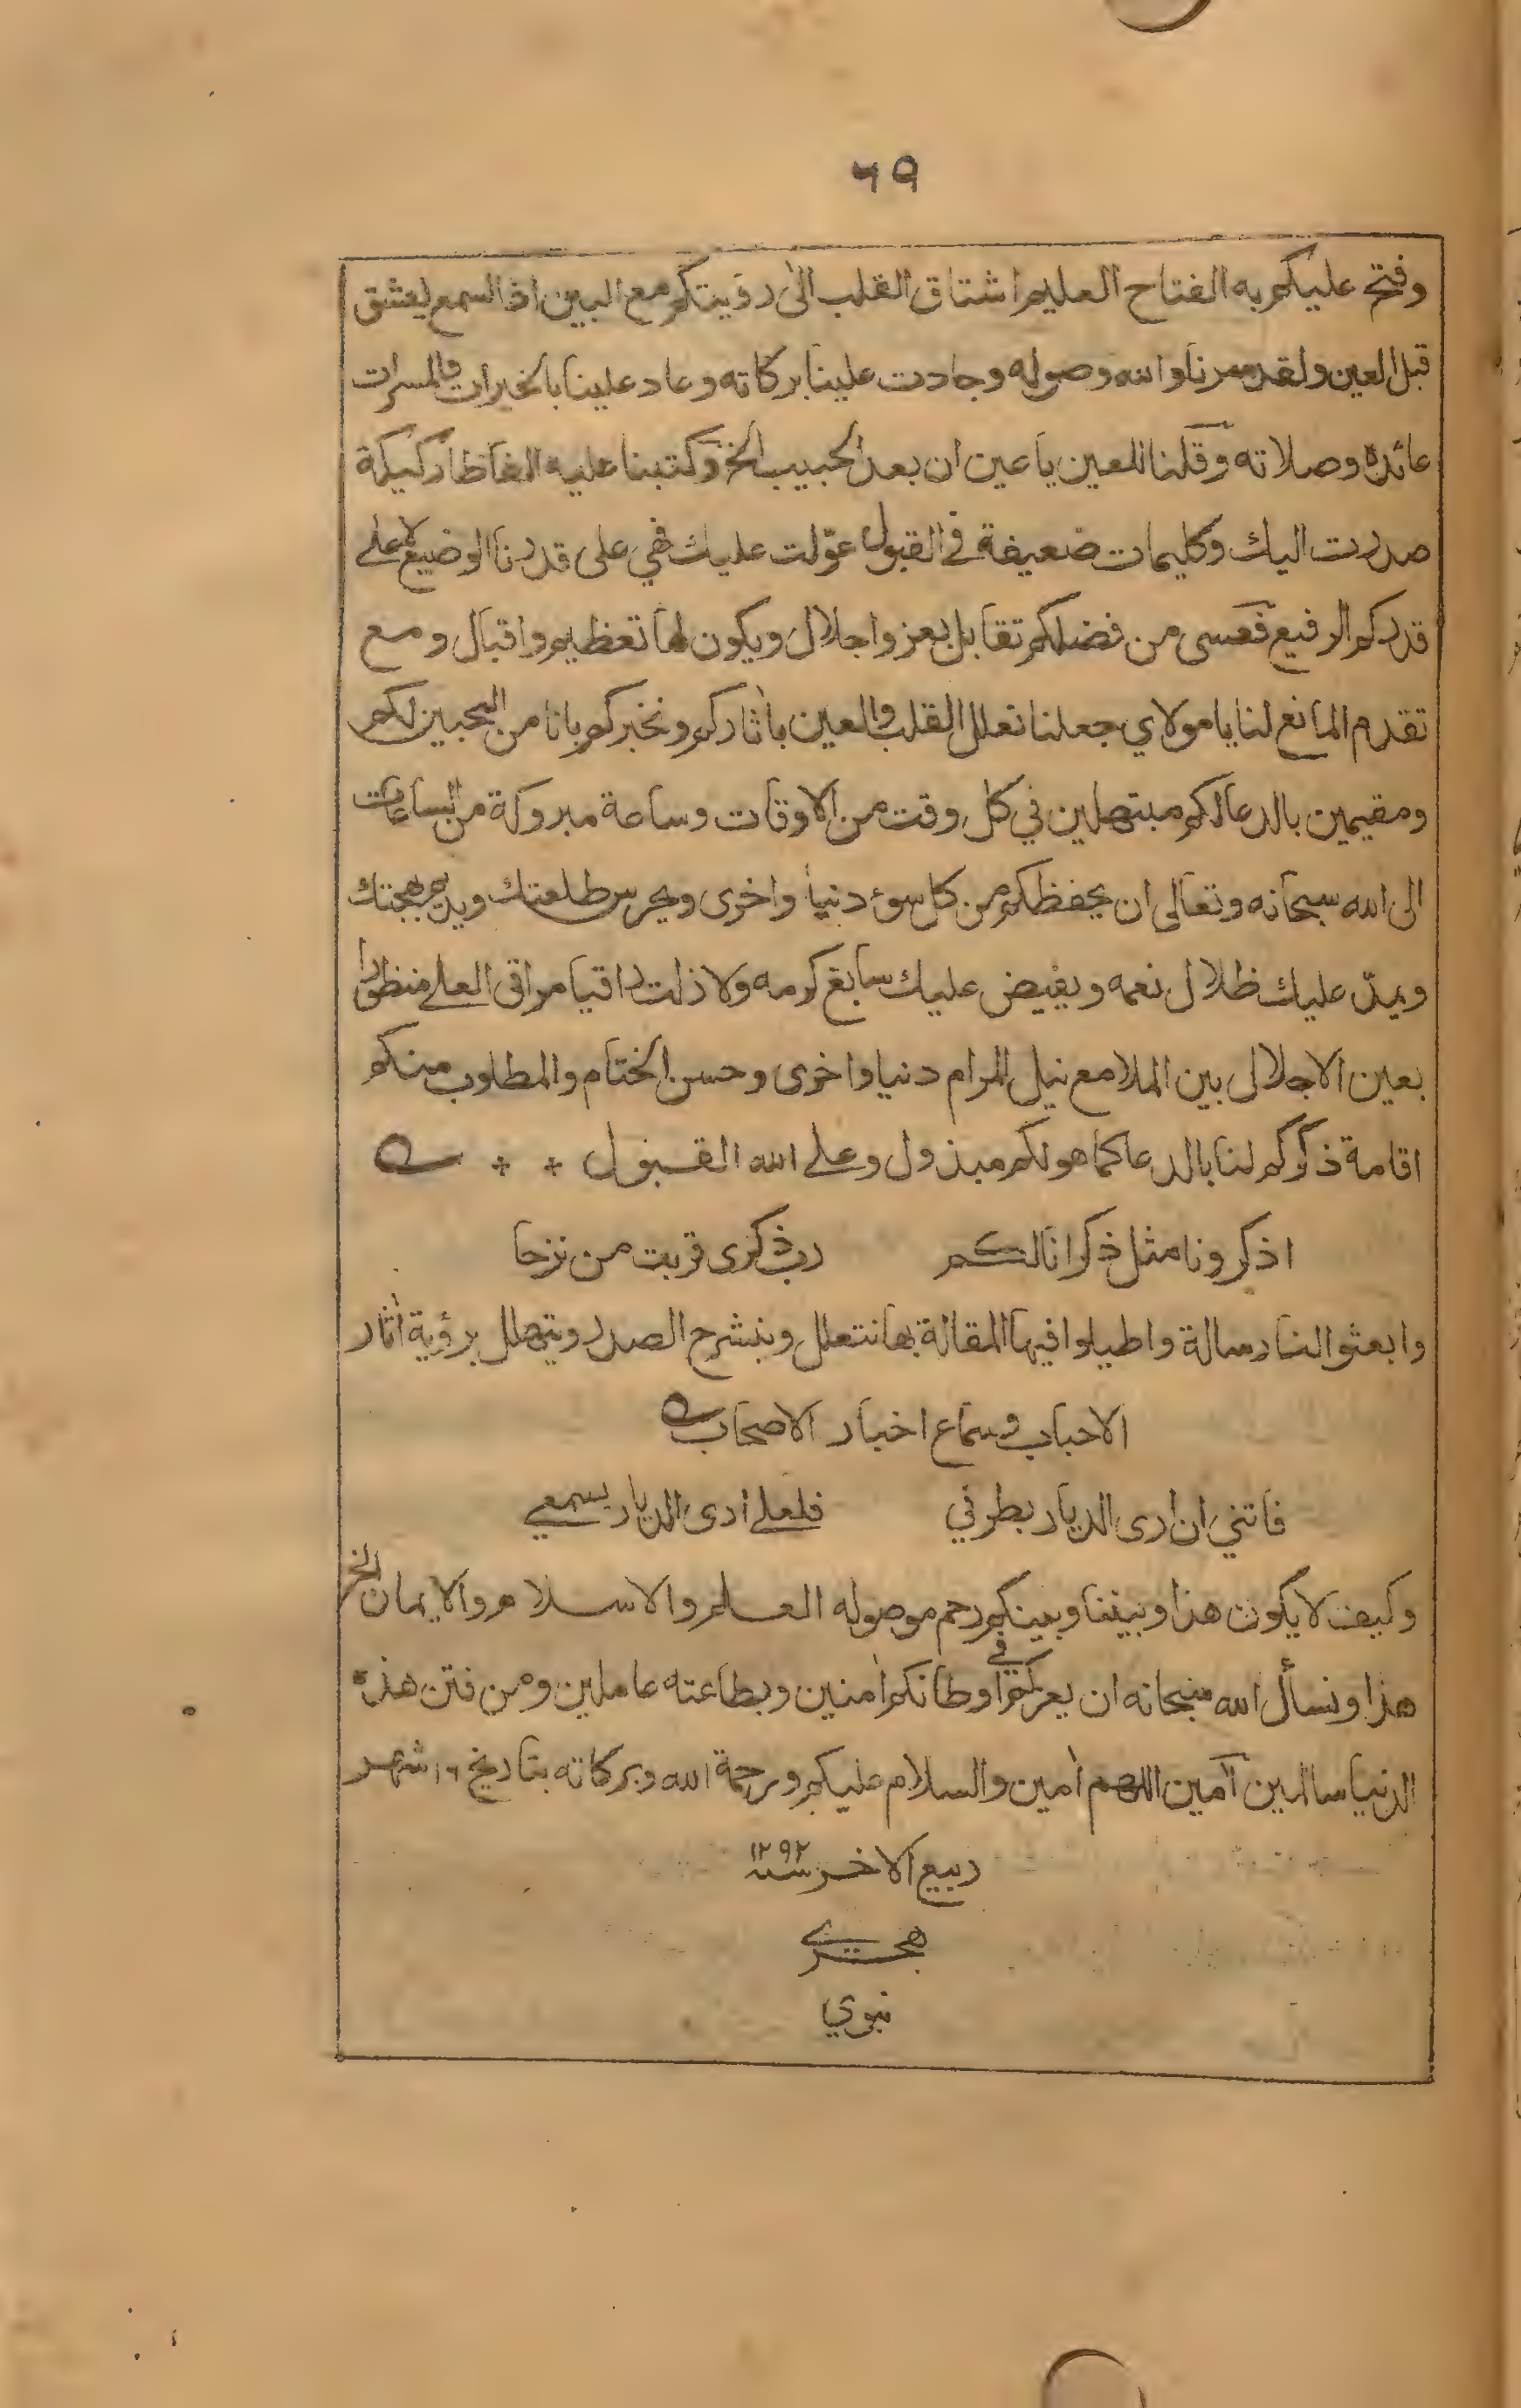 ٦٩
وفتح عليكم به الفتاح العليم اشتاق القلب الى رؤيتكم مع البين اذ السمع ليعشق
قبل العين ولقد سرنا والله وصوله وجادت علينا بركاته وعاد علينا بالخيرات والمسرات
عائده وصلاته وقلنا للعين يا عين ان بعد الحبيب الخ وكتبنا عليه الفاظا ركيكة
صدرت اليك وكليمات ضعيفة في القبول عوّلت عليك فهي على قدرنا الوضيع لا على
قدركم الرفيع فعسى من فضلكم تقابل بعز واجلال ويكون لها تعظيم واقبال ومع
تقدم المانع لنا يا مولاي جعلنا نعلل القلب والعين بآثاركم ونخبركم بانا من المحبين لكم
ومقيمين بالدعا لكم مبتهلين في كل وقت من الاوقات وساعة مبروكة من الساعات
الى الله سبحانه وتعالى ان يحفظكم من كل سوء دنيا واخرى ويحرس طلعتك ويديم بهجتك
ويمدّ عليك ظلال نعمه ويفيض عليك سابغ كرمه ولا زلت راقيا مراقى العلى منظورا
بعين الاجلال بين الملا مع نيل المرام دنيا واخرى وحسن الختام والمطلوب منكم
اقامة ذكركم لنا بالدعا كما هو لكم مبذول وعلى الله القبول
اذكرونا مثل ذكرانا لكم رب ذكرى قربت من نزحا
وابعثوا لنا رسالة واطيلوا فيها المقالة بها نتعلل وينشرح الصدر ويتهلل برؤية آثار
الاحباب وسماع اخبار الاصحاب
فاتني ان ارى الديار بطرفي فلعلي ارى الديار بسمعي
وكيف لا يكون هذا وبيننا وبينكم رحم موصوله العلم والاسلام والايمان الخ
هذا ونسأل الله سبحانه ان يعزكم في اوطانكم آمنين وبطاعته عاملين ومن فتن هذه
الدنيا سالمين آمين اللهم آمين والسلام عليكم ورحمة الله وبركاته بتاريخ ١٦ شهر
ربيع الاخر سنة ١٢٩٢
هجري
نبوي